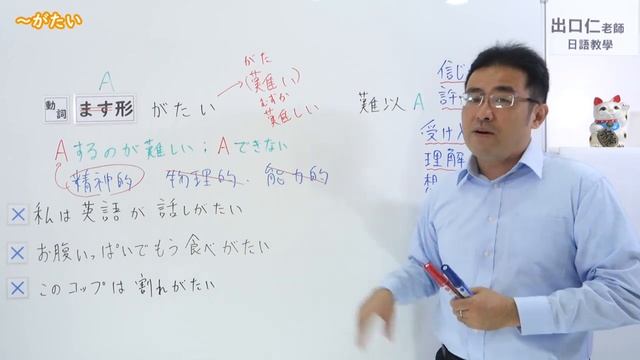 ～がたい
出口仁老師
日語教學
A
動詞 ます形 がたい
がた
(難い)
むずか
難しい
難以A
Aするのが難しい；Aできない
精神的 物理的・能力的
✕ 私は英語が話しがたい
✕ お腹いっぱいでもう食べがたい
✕ このコップは割れがたい
信じ
許
受け入
理解
想